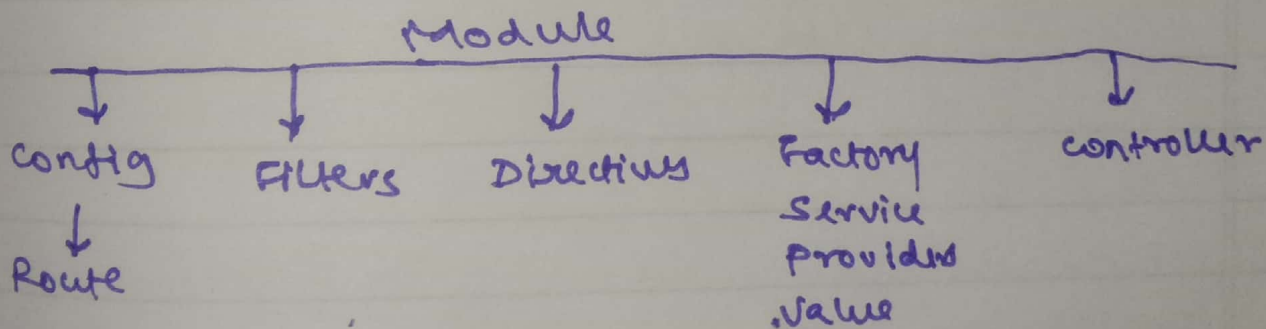 Module
Config
Filters
Directives
Factory
Service
Providers
.Value
Controller
Route